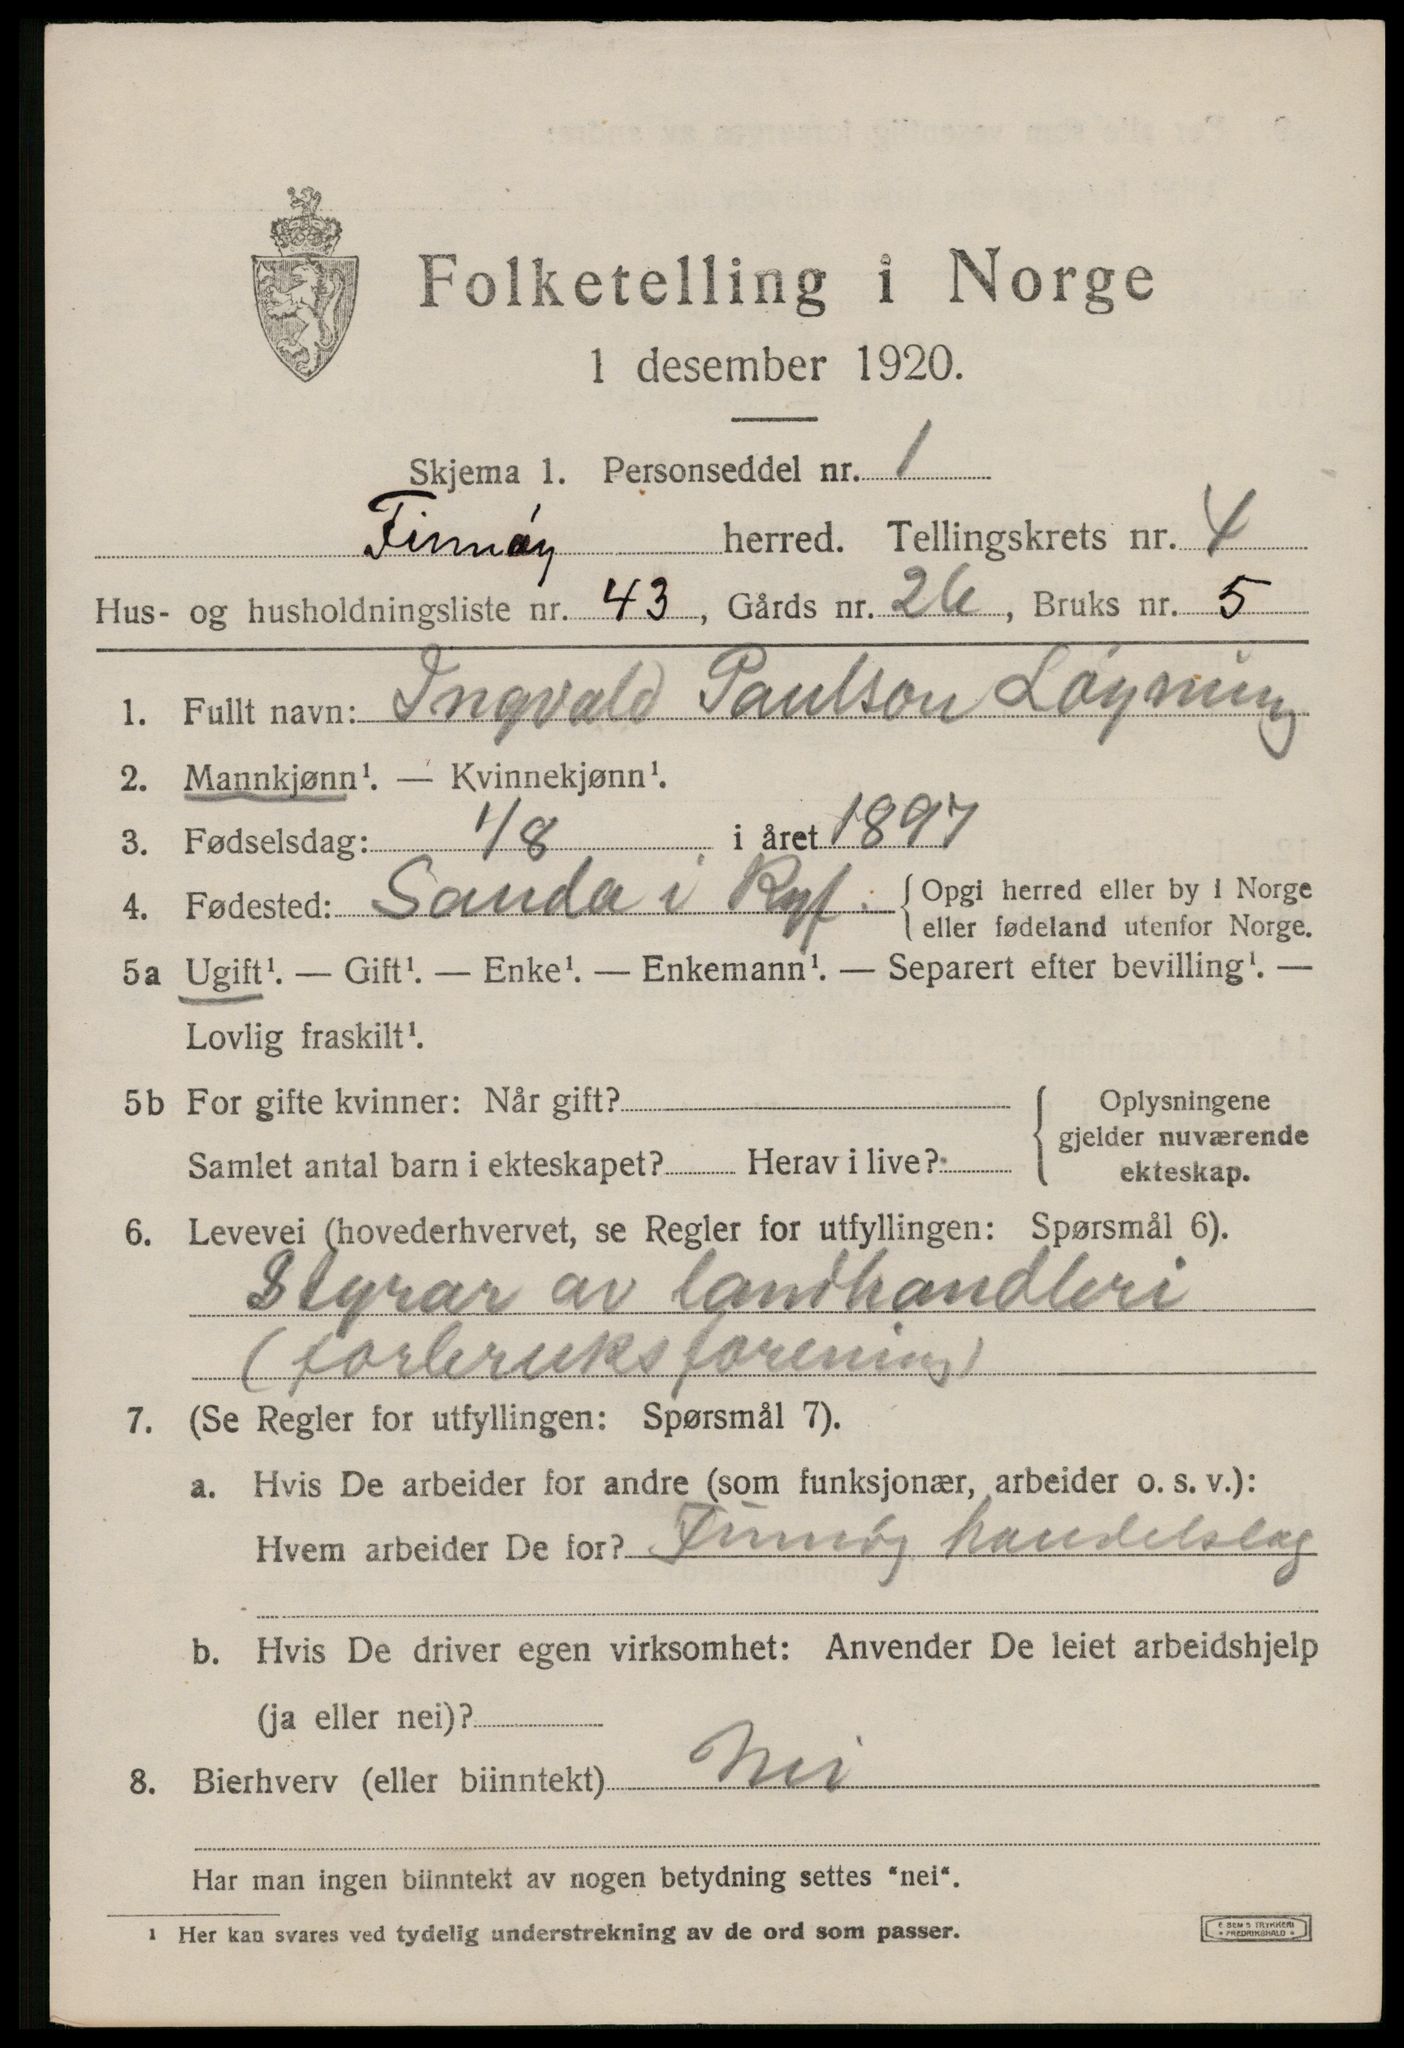 Folketelling i Norge
1 desember 1920.
Skjema 1. Personseddel nr. 1
Finnøy herred. Tellingskrets nr. 4
Hus- og husholdningsliste nr. 43, Gårds nr. 26, Bruks nr. 5
1. Fullt navn: Ingvald Paulson Löyning
2. Mannkjønn¹. — Kvinnekjønn¹.
3. Fødselsdag: 1/8 i året 1897
4. Fødested: Sauda i Ryf. Opgi herred eller by i Norge
eller fødeland utenfor Norge.
5a Ugift¹. — Gift¹. — Enke¹. — Enkemann¹. — Separert efter bevilling¹. —
Lovlig fraskilt¹.
5b For gifte kvinner: Når gift? Oplysningene
gjelder nuværende
Samlet antal barn i ekteskapet? Herav i live?
ekteskap.
6. Levevei (hovederhvervet, se Regler for utfyllingen: Spørsmål 6).
Styrar av landhandleri
(forbruksforening)
7. (Se Regler for utfyllingen: Spørsmål 7).
a. Hvis De arbeider for andre (som funksjonær, arbeider o. s. v.):
Hvem arbeider De for? Finnøy handelslag
b. Hvis De driver egen virksomhet: Anvender De leiet arbeidshjelp
(ja eller nei)?
8. Bierhverv (eller biinntekt) Nei
Har man ingen biinntekt av nogen betydning settes "nei".
¹ Her kan svares ved tydelig understrekning av de ord som passer.
E SEM'S TRYKKERI
FREDRIKSHALD